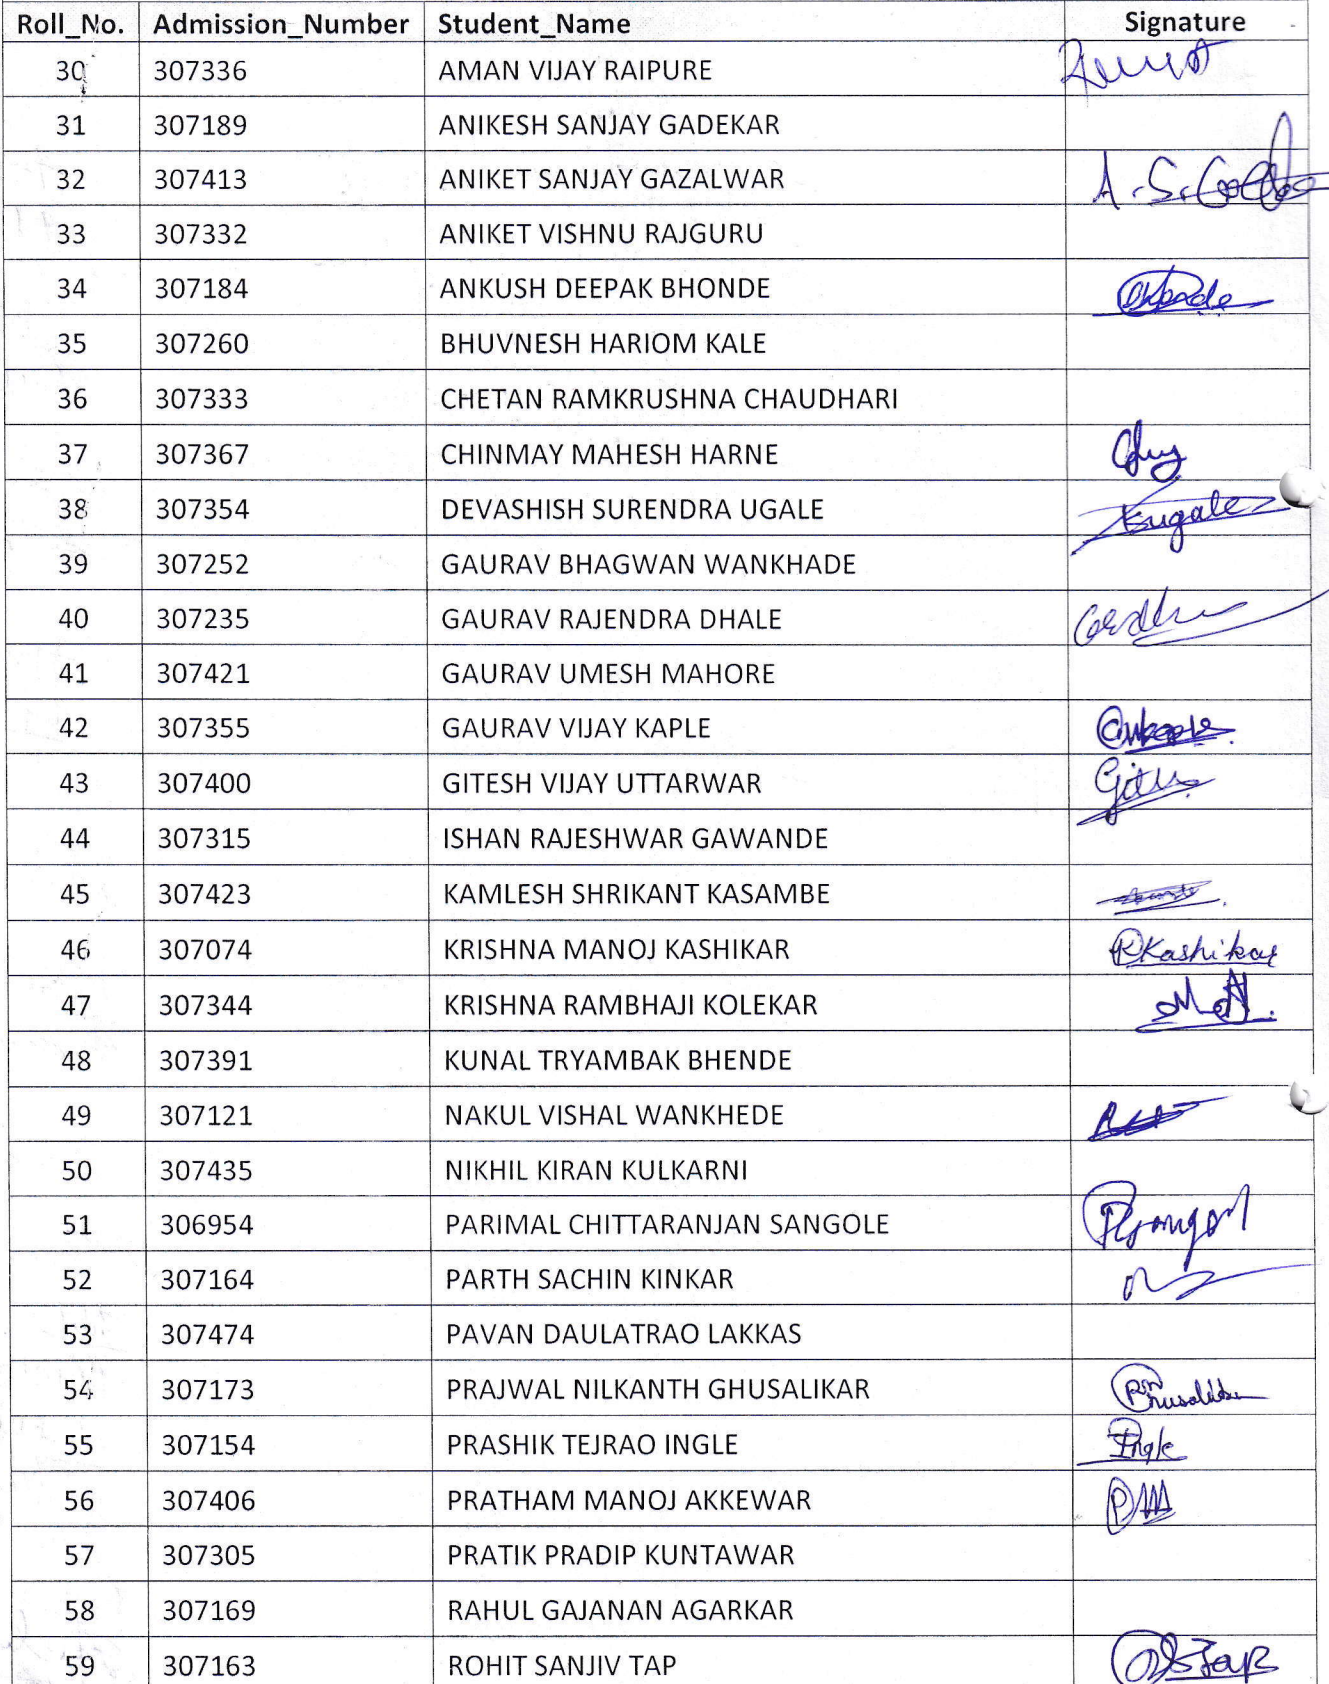 Roll_No. Admission_Number Student_Name Signature
30 307336 AMAN VIJAY RAIPURE
31 307189 ANIKESH SANJAY GADEKAR
32 307413 ANIKET SANJAY GAZALWAR
33 307332 ANIKET VISHNU RAJGURU
34 307184 ANKUSH DEEPAK BHONDE
35 307260 BHUVNESH HARIOM KALE
36 307333 CHETAN RAMKRUSHNA CHAUDHARI
37 307367 CHINMAY MAHESH HARNE
38 307354 DEVASHISH SURENDRA UGALE
39 307252 GAURAV BHAGWAN WANKHADE
40 307235 GAURAV RAJENDRA DHALE
41 307421 GAURAV UMESH MAHORE
42 307355 GAURAV VIJAY KAPLE
43 307400 GITESH VIJAY UTTARWAR
44 307315 ISHAN RAJESHWAR GAWANDE
45 307423 KAMLESH SHRIKANT KASAMBE
46 307074 KRISHNA MANOJ KASHIKAR Kashikar
47 307344 KRISHNA RAMBHAJI KOLEKAR
48 307391 KUNAL TRYAMBAK BHENDE
49 307121 NAKUL VISHAL WANKHEDE
50 307435 NIKHIL KIRAN KULKARNI
51 306954 PARIMAL CHITTARANJAN SANGOLE
52 307164 PARTH SACHIN KINKAR
53 307474 PAVAN DAULATRAO LAKKAS
54 307173 PRAJWAL NILKANTH GHUSALIKAR
55 307154 PRASHIK TEJRAO INGLE Ingle
56 307406 PRATHAM MANOJ AKKEWAR
57 307305 PRATIK PRADIP KUNTAWAR
58 307169 RAHUL GAJANAN AGARKAR
59 307163 ROHIT SANJIV TAP